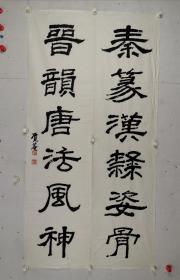 秦篆漢隸姿骨
晉韻唐法風神